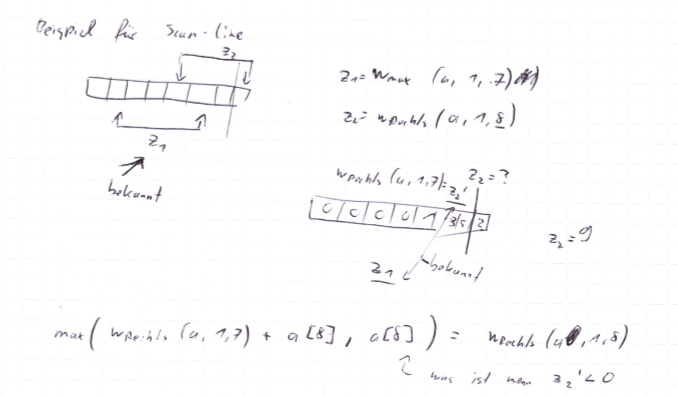 Beispiel für Scan-Line
z₂
z₁
bekannt
z₁ = wmax (a, 1, 7)
z₂ = wrechts (a, 1, 8)
wrechts (a, 1, 7) = z₂' z₂ = ?
0 0 0 0 1 3 5 2
z₁ bekannt
z₂ = 9
max( wrechts (a, 1, 7) + a[8], a[8] ) = wrechts (a, 1, 8)
was ist wenn z₂' < 0